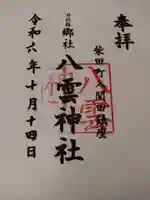 奉拝
柴田町入間田鎮座
郷社
八雲神社
令和六年十月十四日
八雲